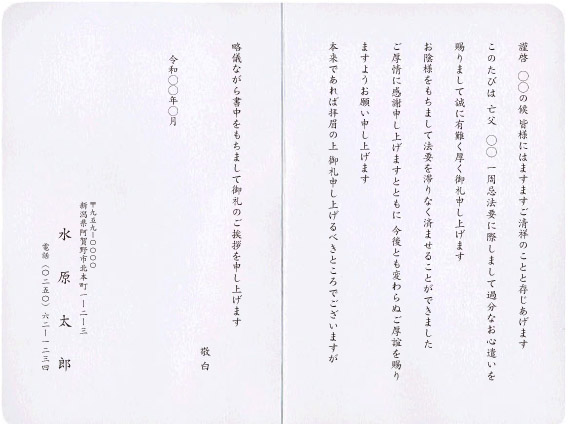 謹啓 〇〇の候 皆様にはますますご清祥のことと存じあげます
このたびは 亡父 〇〇 一周忌法要に際しまして過分なお心遣いを
賜りまして誠に有難く厚く御礼申し上げます
お陰様をもちまして法要を滞りなく済ませることができました
ご厚情に感謝申し上げますとともに 今後とも変わらぬご厚誼を賜り
ますようお願い申し上げます
本来であれば拝眉の上 御礼申し上げるべきところでございますが
略儀ながら書中をもちまして御礼のご挨拶を申し上げます
敬白
令和〇〇年〇月
〒九五九ー〇〇〇〇
新潟県阿賀野市北本町一ー二ー三
水原太郎
電話(〇二五〇)六二ー一二三四